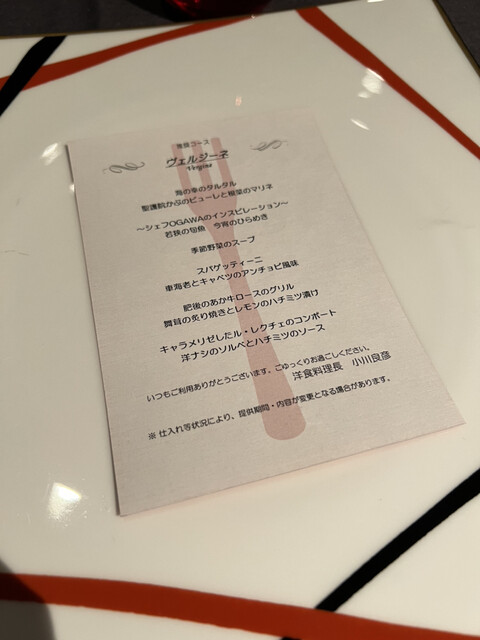 コース
ヴェルジーネ
Vergine
海の幸のタルタル
聖護院かぶのピューレと根菜のマリネ
～シェフOGAWAのインスピレーション～
若狭の旬魚　今宵のひらめき
季節野菜のスープ
スパゲッティーニ
車海老とキャベツのアンチョビ風味
肥後のあか牛ロースのグリル
舞茸の炙り焼きとレモンのハチミツ漬け
キャラメリゼしたル・レクチェのコンポート
洋ナシのソルベとハチミツのソース
いつもご利用ありがとうございます。ごゆっくりお過ごしください。
洋食料理長　小川良彦
※ 仕入れ等状況により、提供期間・内容が変更となる場合があります。